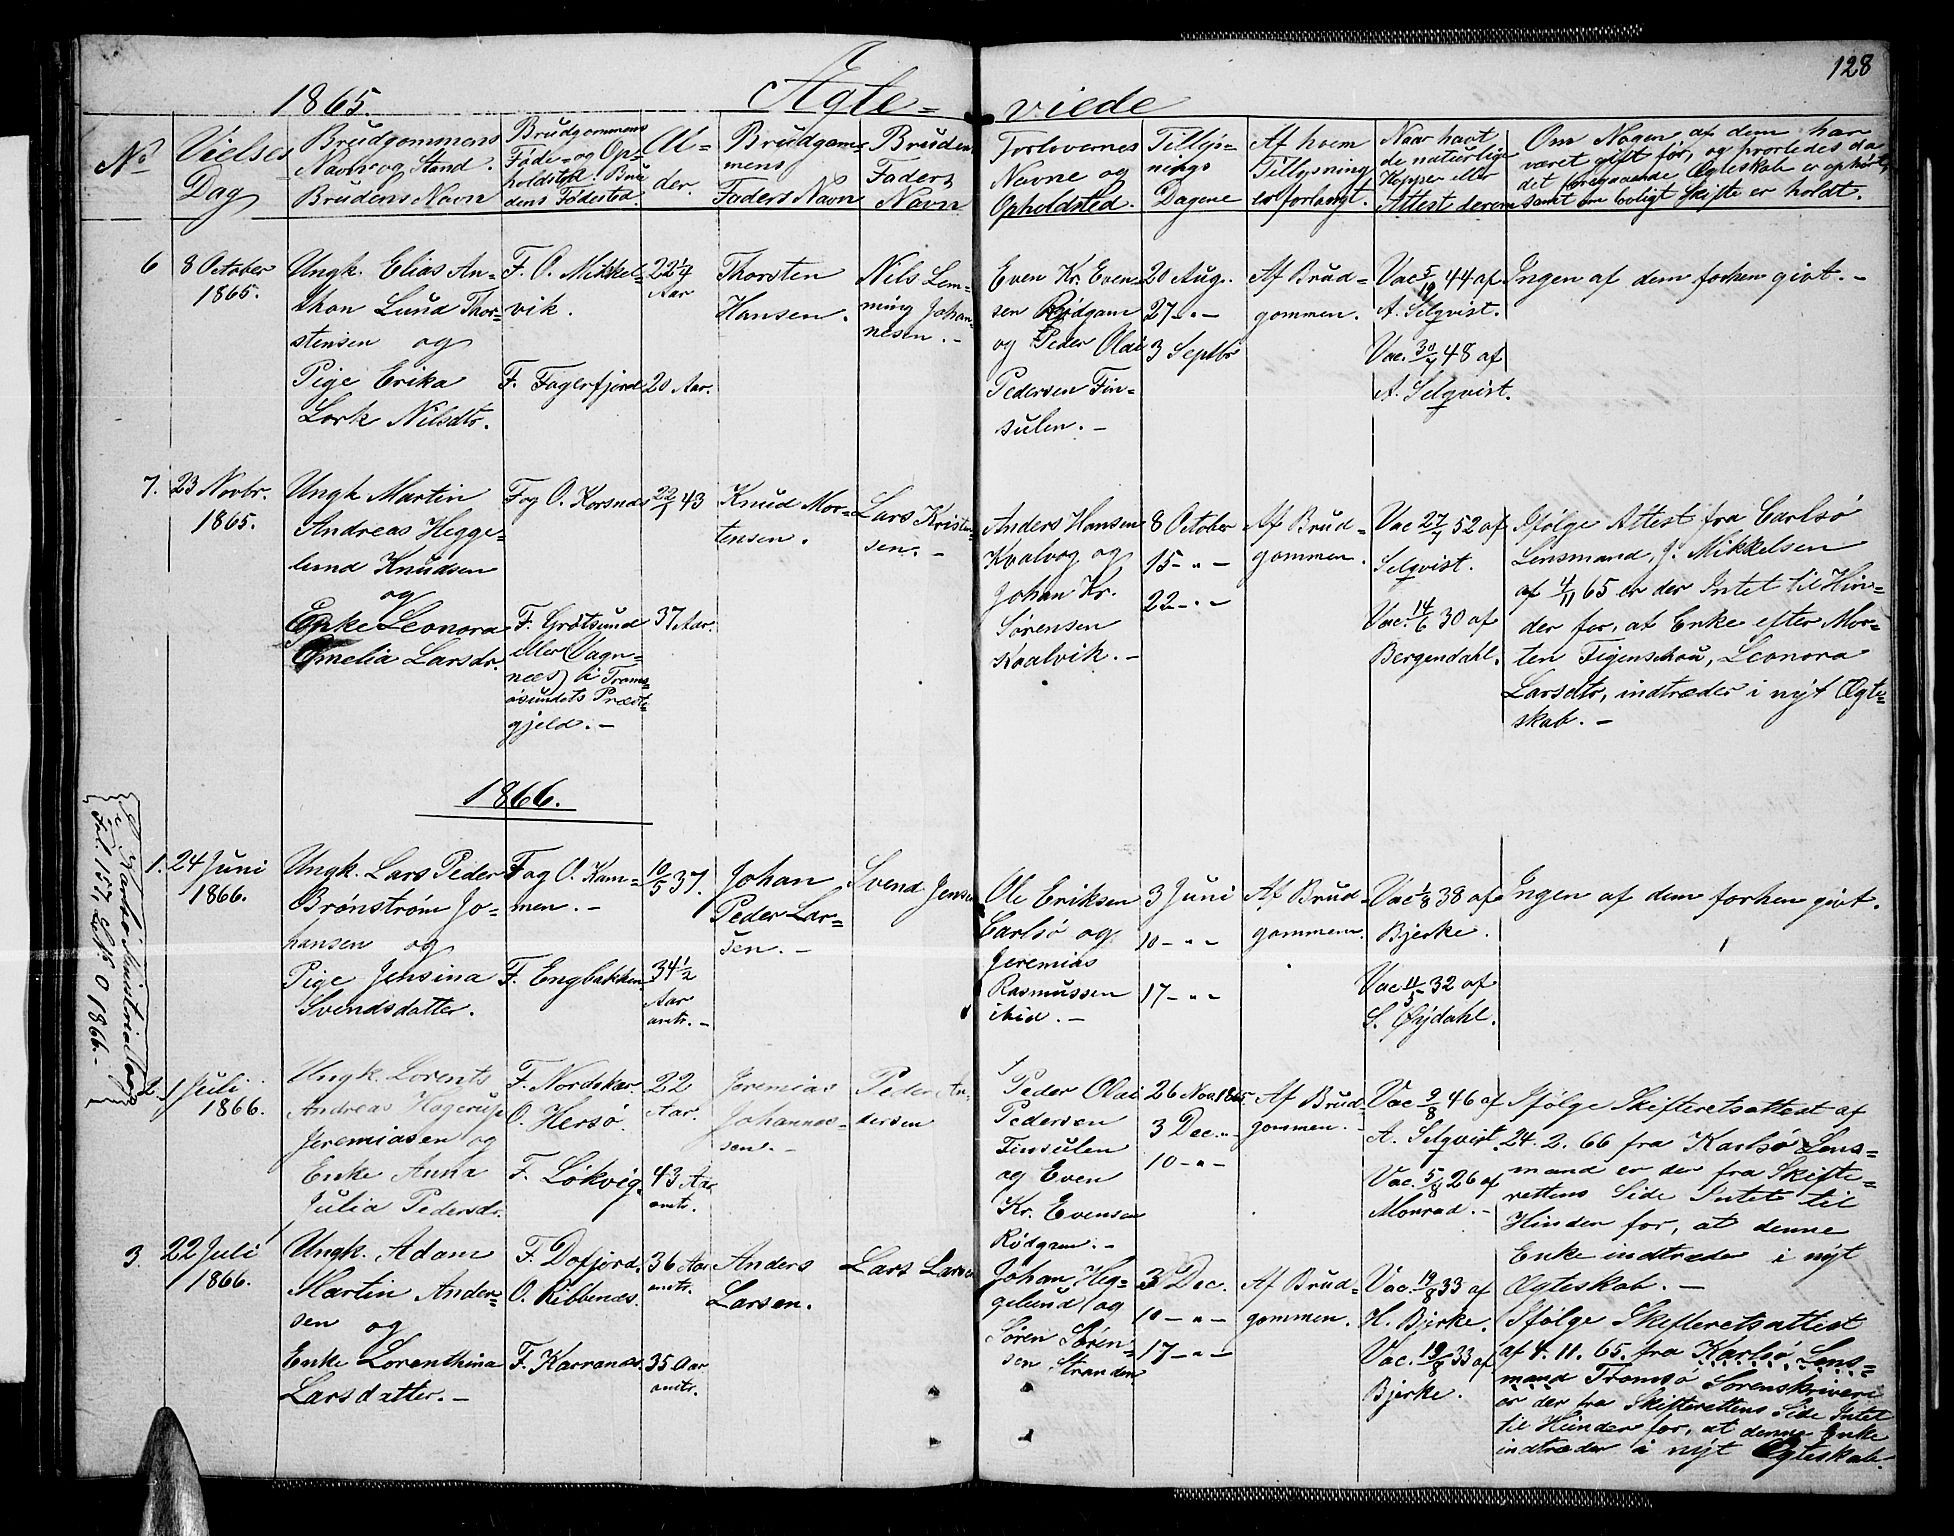 128
1865. Ægte= viede
No
Vielses
Dag
Brudgommens
Navn og Stand.
Brudens Navn
Brudgommens
Føde= og Op=
holdsted. Bru
dens Fødested.
Al=
der.
Brudgom=
mens
Faders Navn
Brudens
Faders
Navn
Forlovernes
Navne og
Opholdsted.
Tillys=
nings
Dagene
Af hvem
Tillysning
er forlangt.
Naar havt
de naturlige
Kopper eller
Attest derom
Om Nogen af dem har
været gift før, og hvorledes da
det foregaaende Ægteskab er ophørt,
samt om lovligt Skifte er holdt.
6
8 October
1865.
Ungk. Elias An=
thon Lund Thor=
stensen og
Pige Erika
Lork Nilsdtr.
F. O. Mikkel=
vik.
F. Fagerfjord
22 1/4
Aar
20 Aar.
Thorsten
Hansen.
Nils Lem=
ming Johan=
nesen. -
Even Kr. Even
sen Rødgam
og Peder Olai
Pedersen Fin=
sulen. -
20 Aug.
27 - " -
3 Septbr
Af Brud=
gommen.
Vac 5/10 44 af
A. Selqvist.
Vac. 30/7 48 af
A. Selqvist.
Ingen af dem forhen givt. -
7.
23 Novbr.
1865.
Ungk Martin
Andreas Hegge=
lund Knudsen
og
Enke Leonora
Emelia Larsdr.
F og O. Korsnes
F. Grøtsund
eller (Vagn=
næs) i Troms=
øsundets Præste=
gjeld. -
22/1 43
37 Aar.
Knud Mor=
tensen.
Lars Kristen=
sen. -
Anders Hansen
Kvalvog og
Johan Kr.
Sørensen
Kvalvik. -
8 October
15 - " -
22 - " -
Af Brud=
gommen.
Vac 27/7 52 af
Selqvist.
Vac. 14/6 30 af
Bergendahl.
Ifølge Attest fra Carlsø
Lensmand, J. Mikkelsen
af 4/11 65 er der Intet til Hin=
der for, at Enke efter Mor=
ten Figenschou, Leonora
Larsdtr, indtræder i nyt Ægte=
skab. -
1866.
1.
24 Juni
1866.
Ungk. Lars Peder
Brønstrøm Jo=
hansen og
Pige Jensina
Svendsdatter.
F og O. Kam=
men. -
F. Engbakken.
10/5 37.
34 1/2
Aar
omtr. -
Johan
Peder Lar=
sen. -
Svend Jensen
Ole Eriksen
Carlsø og
Jeremias
Rasmussen
ibid. -
3 Juni
10 - " -
17 - " -
Af Brud=
gommen.
Vac 1/8 38 af
Bjerke.
Vac 11/5 32 af
S. Øydahl.
Ingen af dem forhen givt.
2.
1 Juli
1866.
Ungk. Lorents
Andreas Hagerup
Jeremiasen og
Enke Anna
Julia Pedersdr.
F. Nordskar
O. Hersø.
F. Løkvig.
22
Aar.
43 Aar
omtr.
Jeremias
Johannes=
sen. -
Peder An=
dersen
Peder Olai
Pedersen
Finsulen
og Even
Kr. Evensen
Rødgam. -
26 Nov. 1865
3 Dec. "
10 - " -
Af Brud=
gommen. -
Vac 9/8 46 af
A. Selqvist.
Vac. 5/8 26 af
Monrad. -
Ifølge Skifteretsattest af
24. 2. 66 fra Karlsø Lens=
mand er der fra Skifte=
rettens Side Intet til
Hinder for, at denne
Enke indtræder i nyt
Ægteskab. -
3.
22 Juli
1866.
Ungk. Adam
Martin Ander=
sen og
Enke Lorenthina
Larsdatter. -
F. Dofjord.
O. Ribbenæs.
F. Karranæs.
36 Aar
omtr.
35 Aar
omtr.
Anders
Larsen.
Lars Larsen
Johan Heg=
gelund og
Søren Søren=
sen Stranden
3 Dec.
10 - " -
17 - " -
Af Brud=
gommen.
Vac. 19/8 33 af
H. Bjerke.
Vac. 19/8 33 af
Bjerke.
Ifølge Skifteretsattest
af 4. 11. 65. fra Karlsø Lens=
mand Tromsø Sorenskriveri
er der fra Skifterettens Side Intet
til Hinder for, at denne Enke
indtræder i nyt Ægteskab.
Karlsø Ministerialbog
Fol 157, 0 1866. -